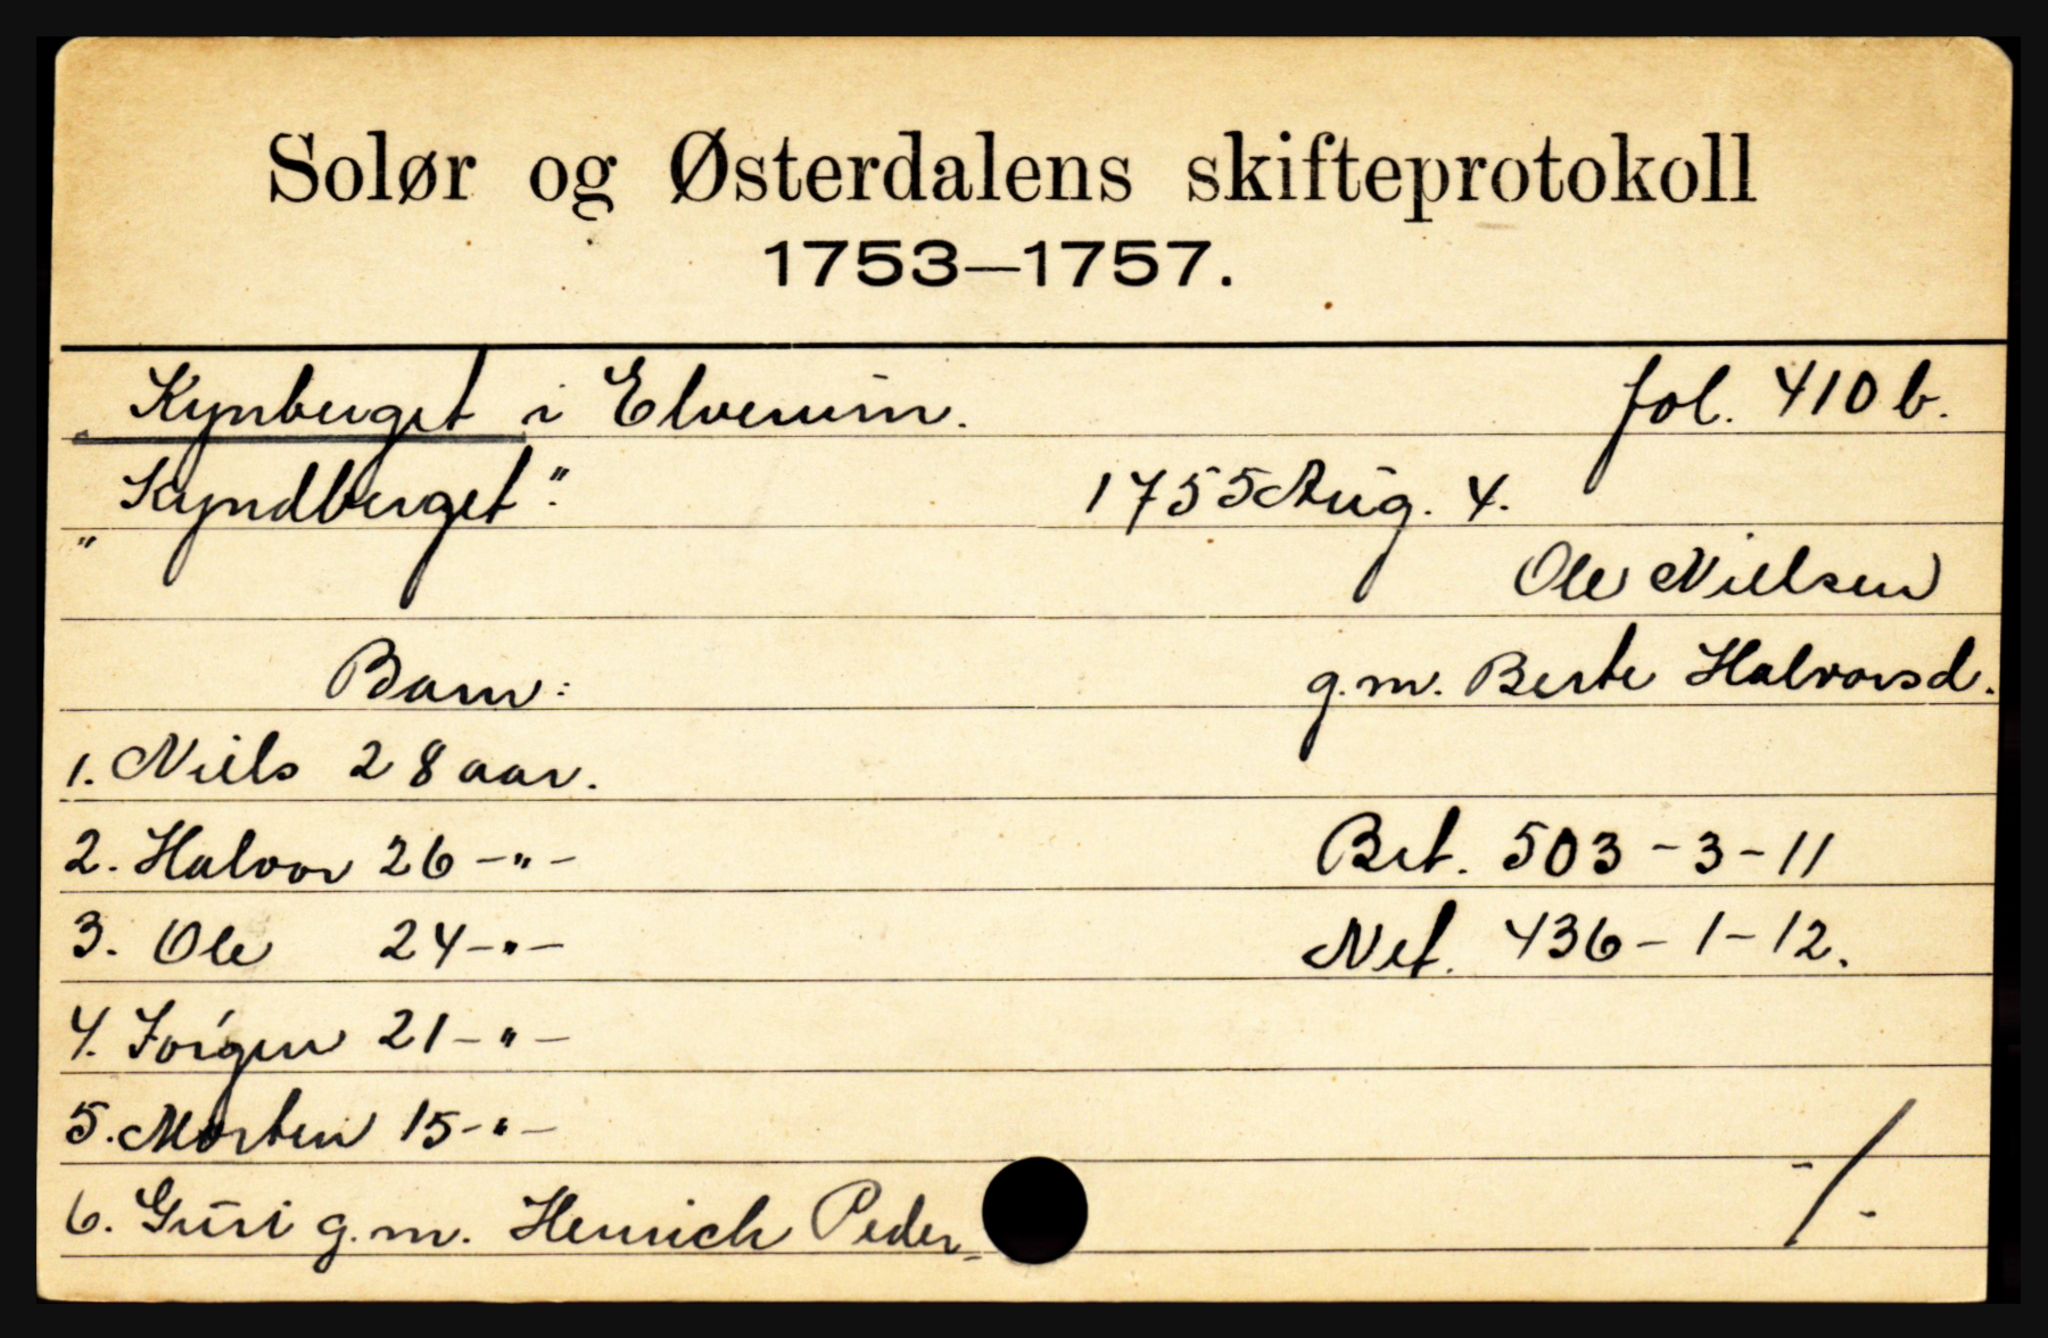 Solør og Østerdalens skifteprotokoll
1753—1757.
Kynberget i Elverum. fol. 410 b.
"Kyndberget". 1755 Aug. 4.
Ole Nielsen
Barn: g.m. Berte Halvorsd.
1. Niels 28 aar.
2. Halvor 26 -"- Brt. 503-3-11
3. Ole 24 -"- Net. 436-1-12.
4. Jörgen 21 -"-
5. Morten 15 -"-
6. Guri g.m. Henrich Peder- -/-